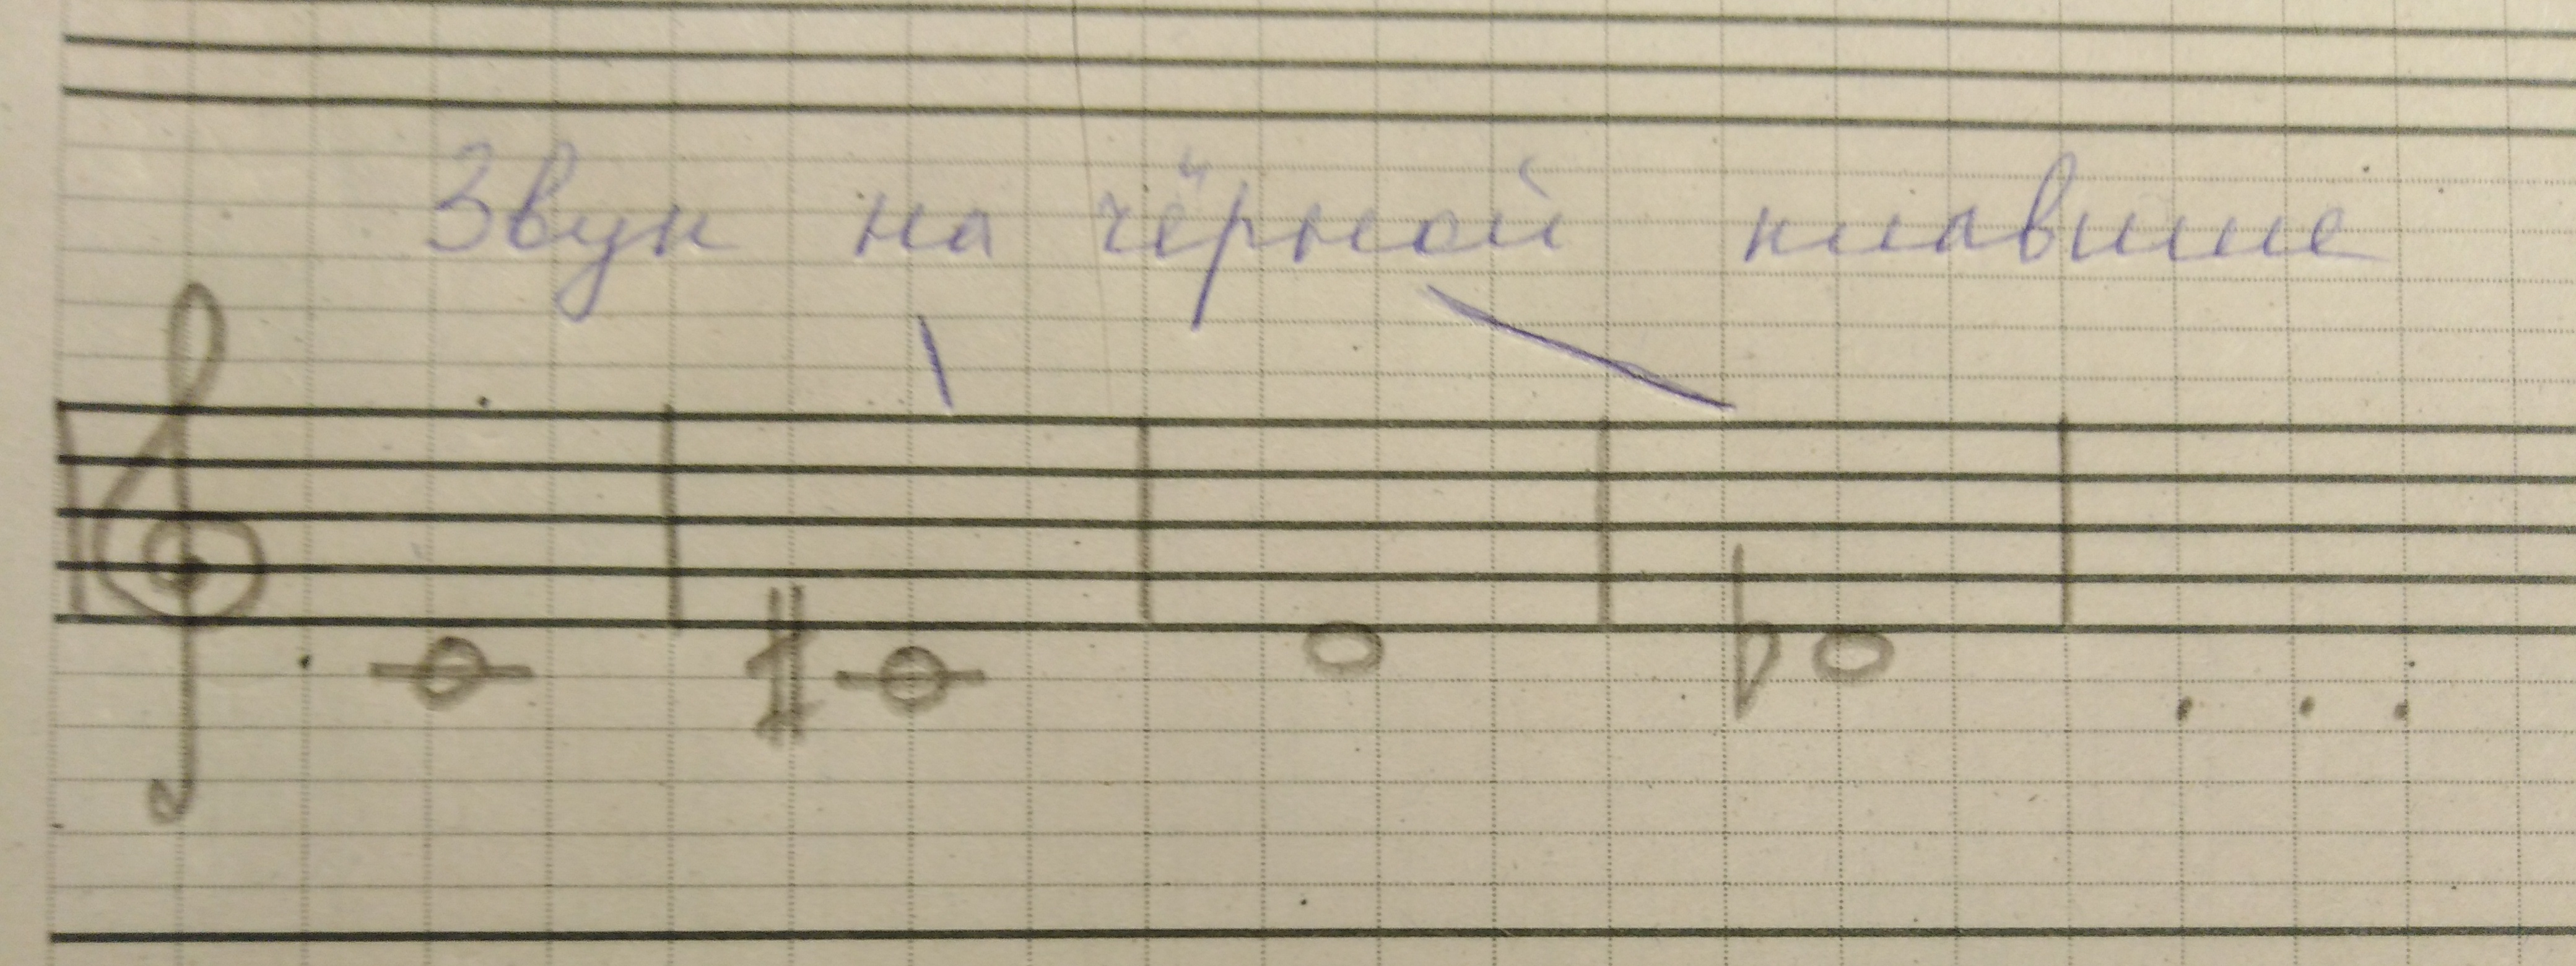 Звук на чёрной клавише
. . .